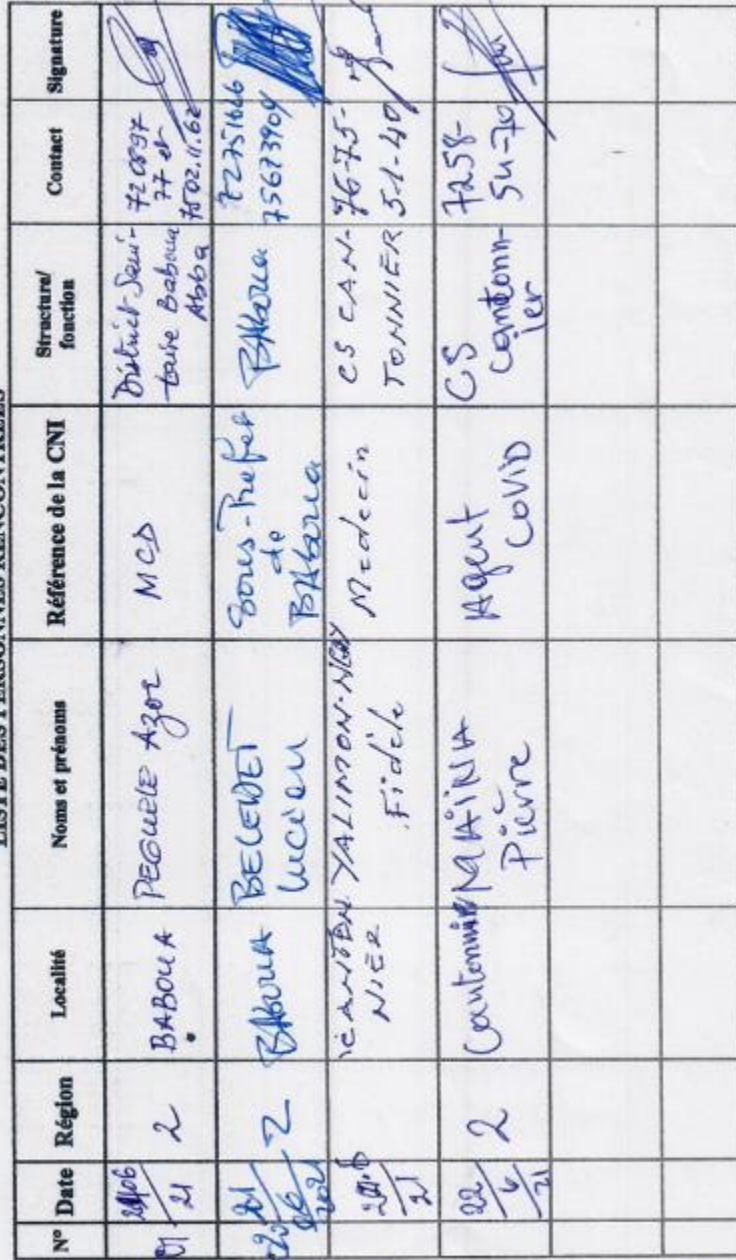 LISTE DES PERSONNES RENCONTREES
N° Date Région Localité Noms et prénoms Référence de la CNI Structure/ fonction Contact Signature
01
06
21
2
BABOUA
PEGUELE Azor
MCD
District Sani-
taire Baboua
Abba
720897
77 et
7502.11.62
21
06
2021
2
BAboua
BELENDET
Lucien
Sous-Prefet
de
BAboua
BAboua
72751666
75673904
21
CANTON
NIER
YALIMON-
Fidèle
Medecin
CS CAN-
TONNIER
76-75-
51-40
22
6
21
2
Cantonnier
MAÏNA
Pierre
Agent
COVID
CS
Cantonn-
ier
7258-
54-70